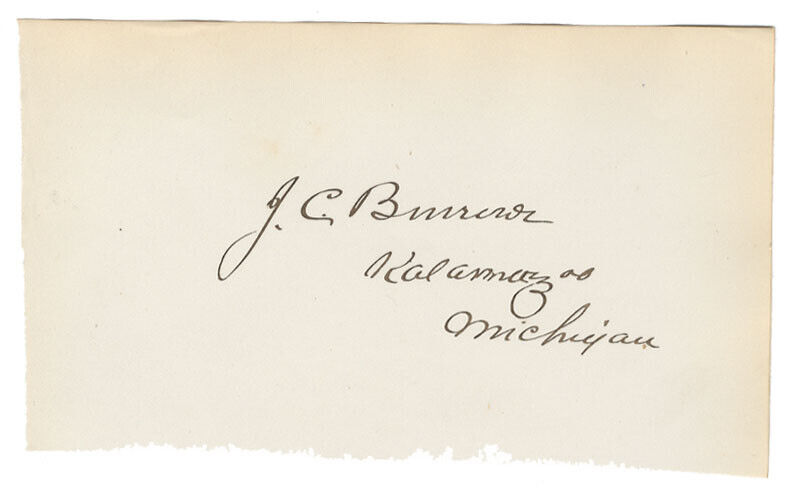 J. C. Burrows
Kalamazoo
Michigan